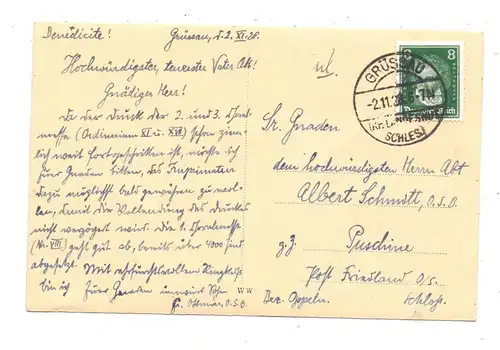 Benedicite! Grüssau, d. 2. XI. 28.
Hochwürdigster, teuerster Vater Abt!
Gnädiger Herr!
Da der Druck der 2. und 3. Choral-
messe (Ordinarium XI u. XVII) schon ziem-
lich weit fortgeschritten ist, möchte ich
Euer Gnaden bitten, das Imprimatur
dazu möglichst bald gewähren zu wol-
len, damit die Vollendung des Druckes
nicht verzögert wird. Die 1. Choralmesse
(Nr. VIII) geht gut ab, bereits über 4000 sind
abgesetzt. Mit ehrfurchtsvollem Ringkuß
bin ich Euer Gnaden
fr. Ottmar O.S.B.
W W
GRÜSSAU
-2.11.28
(KR. LANDESHUT
SCHLES.)
8
Deutsches Reich
Sr. Gnaden
dem hochwürdigsten Herrn Abt
Albert Schmitt, O.S.B.
z. Z. Puschine
Post Friedland O.S.
Bez. Oppeln. Schles.